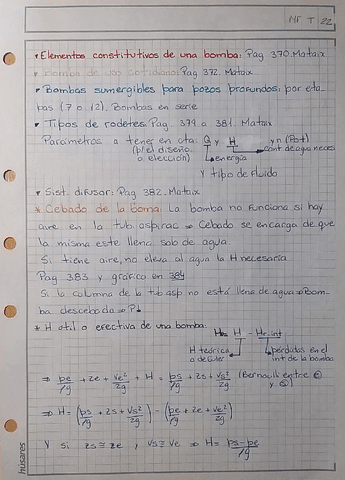 MF T 22
• Elementos constitutivos de una bomba: Pag 370. Mataix
Pag 372. Mataix
• Bombas sumergibles para pozos profundos: por eta
pas (7 o 12). Bombas en serie
• Tipos de rodetes. Pag 379 a 381. Mataix
Parámetros a tener en cta. Q y H y n (Pot)
(p/el diseño cant de agua neces
o elección) energía
y tipo de fluido
• Sist. difusor: Pag 382. Mataix
* Cebado de la boma: La bomba no funciona si hay
aire en la tub. aspirac ⇒ Cebado se encarga de que
la misma este llena solo de agua.
Si tiene aire, no eleva al agua la H necesaria
Pag 383 y gráfico en 384
Si la columna de la tub asp no está llena de agua ⇒ Bom
ba descebada ⇒ P↓
* H util o efectiva de una bomba: H = H - Hr.int
H teórica pérdidas en el
a áct int de la bomba
⇒ pe/ρg + ze + ve²/2g + H = ps/ρg + zs + vs²/2g (Bernoulli entre e
y s)
⇒ H = (ps/ρg + zs + vs²/2g) - (pe/ρg + ze + ve²/2g)
Y si zs ≅ ze , vs ≅ ve ⇒ H = ps-pe/ρg
húsares